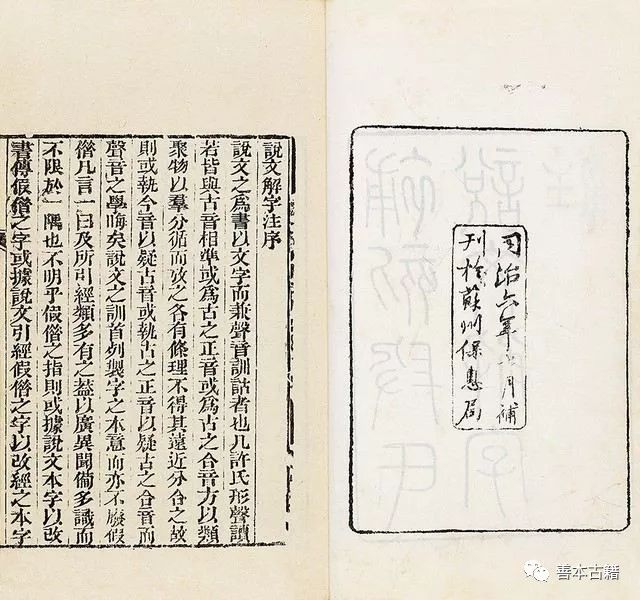 同治六年月補
刊於蘇州保息局
說文解字注序
說文之爲書以文字而兼聲音訓詁者也凡許氏形聲讀
若皆與古音相準或爲古之正音或爲古之合音方以類
聚物以羣分循而攷之各有條理不得其遠近分合之故
則或執今音以疑古音或執古之正音以疑古之合音而
聲音之學晦矣說文之訓首列製字之本意而亦不廢假
借凡言一曰及所引經類多有之葢以廣異聞僃多識而
不限於一隅也不明乎假借之指則或據說文本字以改
書傳假借之字或據說文引經假借之字以改經之本字
善本古籍